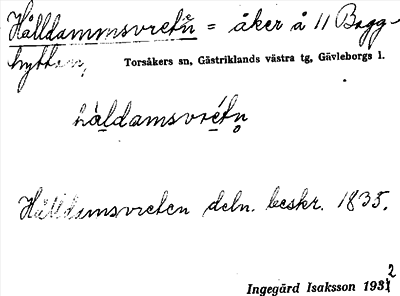 Hålldammsvretn̆ = åker å 11 Bagg-
hyttan,
Torsåkers sn, Gästriklands västra tg, Gävleborgs l.
hàldamsvrétn̥
Hålldamsvreten deln. beskr. 1835.
Ingegärd Isaksson 1932